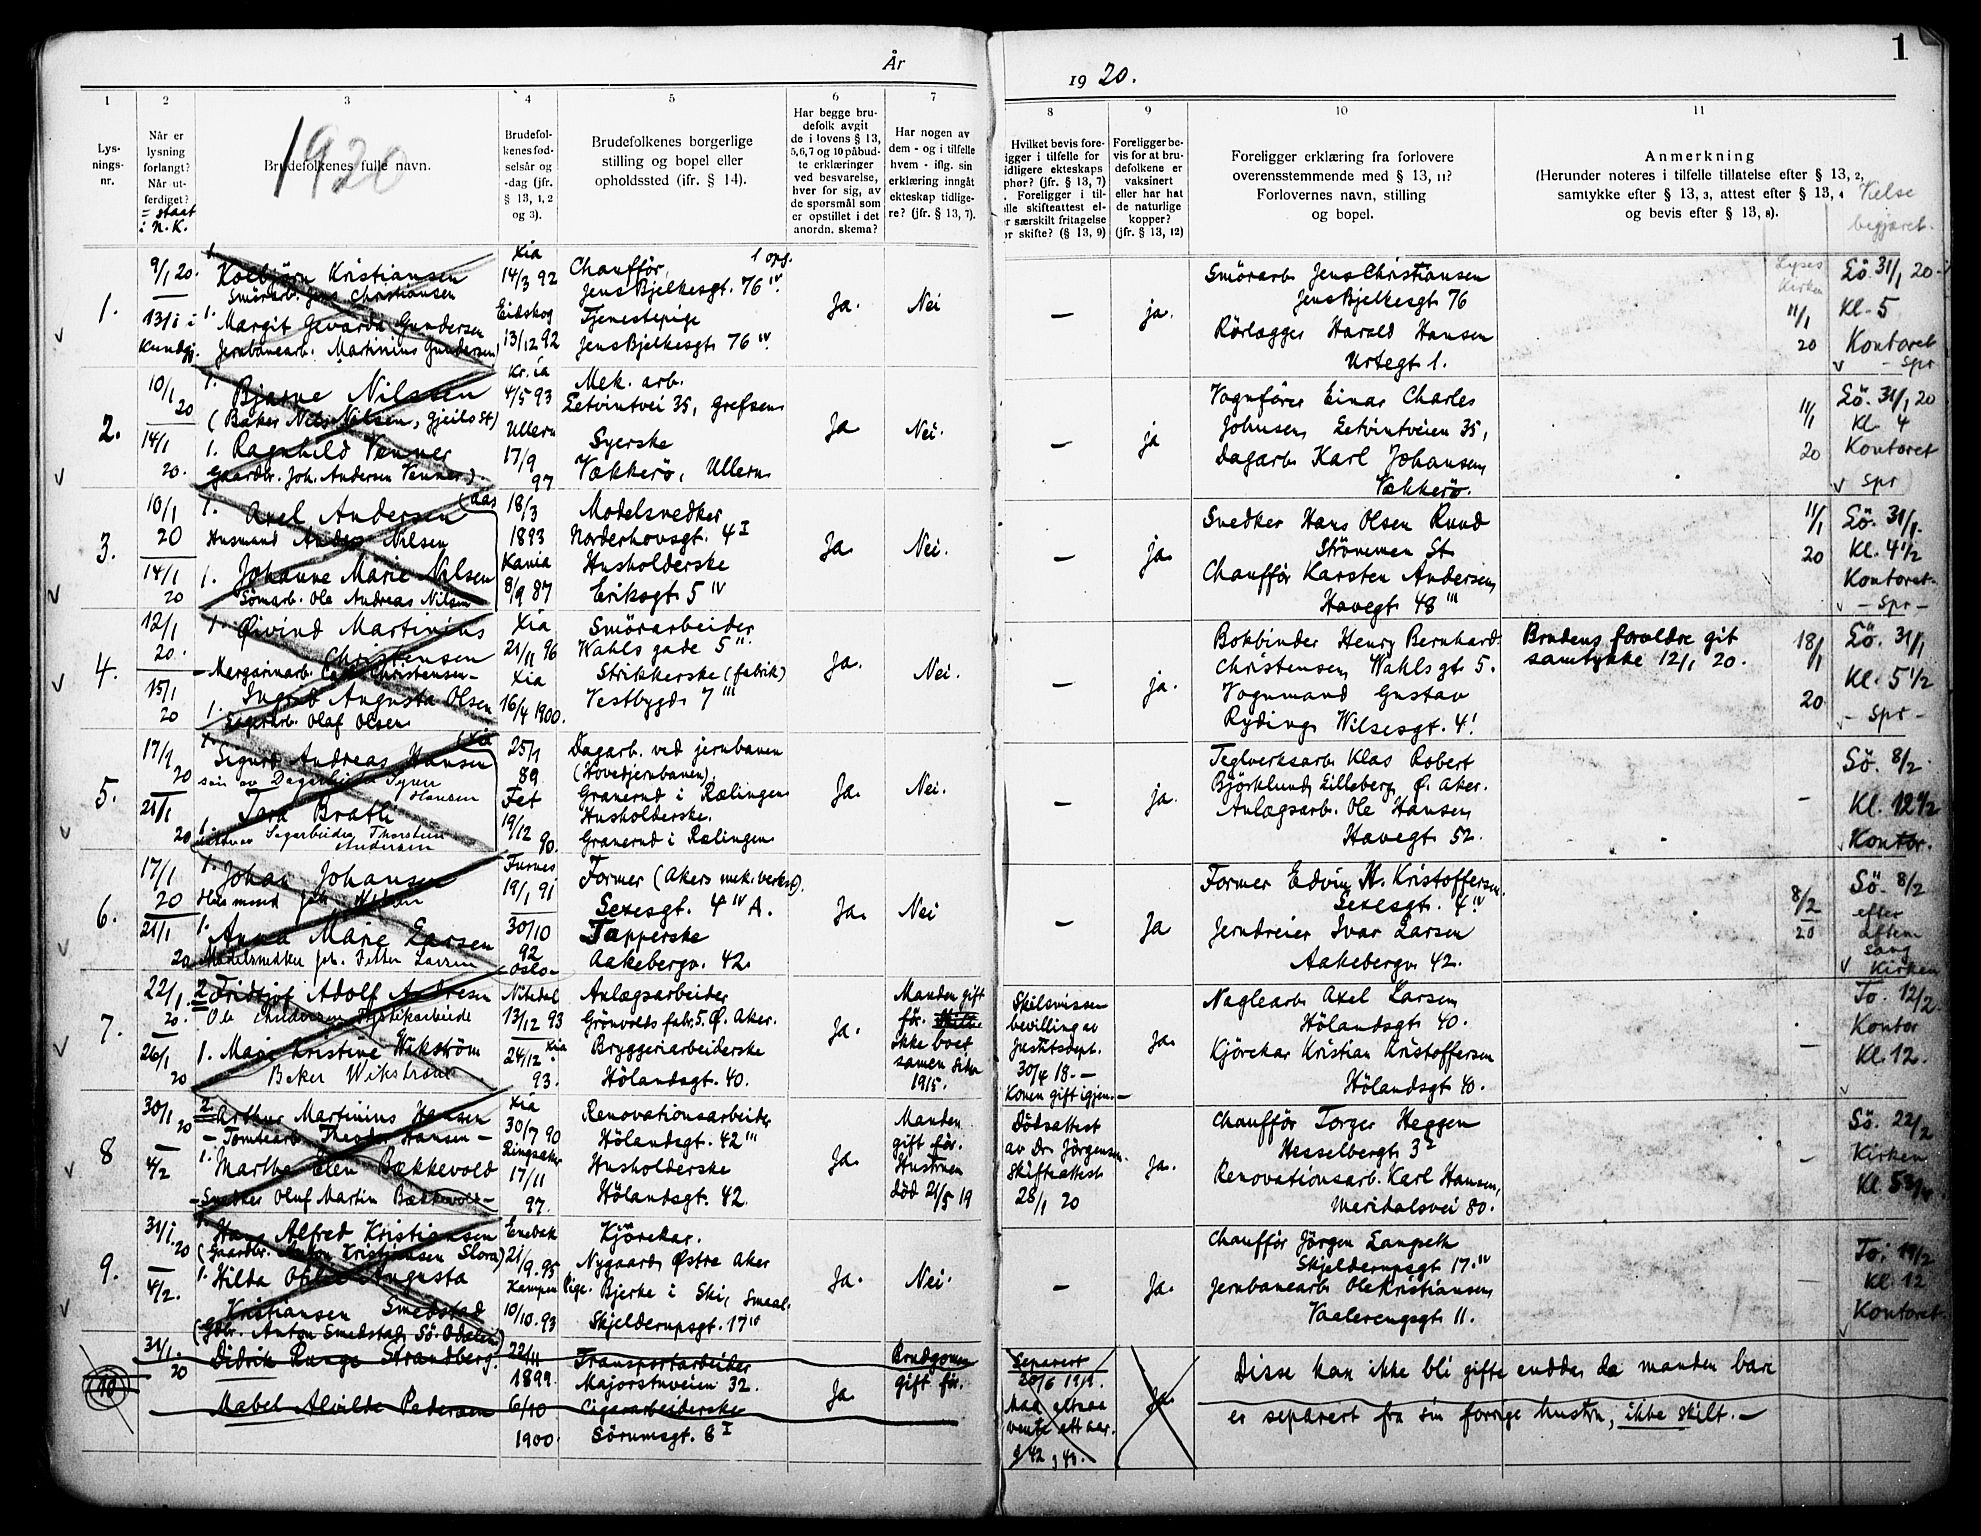 År
19 20.
1
1
2
3
4
5
6
7
8
9
10
11
Lys-
nings-
nr.
Når er
lysning
forlangt?
Når ut-
ferdiget?
= staat
i N. K.
1920
Brudefolkenes fulle navn.
Brudefol-
kenes fød-
selsår og
-dag (jfr.
§ 13, 1, 2
og 3).
Brudefolkenes borgerlige
stilling og bopel eller
opholdssted (ifr. § 14).
Har begge bru-
defolk avgit
de i lovens § 13,
5,6,7 og 10 påbud-
te erklæringer
ved besvarelse,
hver for sig, av
de spørsmål som
er opstillet i det
anordn. skema?
Har nogen av
dem - og i tilfelle
hvem - iflg. sin
erklæring inngått
ekteskap tidlige-
re? (jfr. § 13, 7).
Hvilket bevis fore-
igger i tilfelle for
idligere ekteskaps
phør? (jfr. § 13, 7)
. Foreligger i til-
lle skifteattest el-
r særskilt fritagelse
or skifte? (§ 13, 9)
Foreligger be-
vis for at bru-
defolkene er
vaksinert
eller har hat
de naturlige
kopper?
(jfr. § 13, 12)
Foreligger erklæring fra forlovere
overensstemmende med § 13, 11?
Forlovernes navn, stilling
og bopel.
Anmerkning
(Herunder noteres i tilfelle tillatelse efter § 13, 2,
samtykke efter § 13, 3, attest efter § 13, 4
og bevis efter § 13, 8).
Vielse
begjæret.
1.
9/1 20.
13/1 i
Kundgj.
1. Kolbjørn Kristiansen
Smörarb. Jens Christiansen
1. Margit Gevarda Gundersen
Jernbanearb. Martinius Gundersen
Xia
14/3 92
Eidskog
13/12 92
1 opg.
Chaufför,
Jens Bjelkesgt. 76 IV.
Tjenestepige
Jens Bjelkesgt 76 IV.
Ja.
Nei
—
ja.
Smörarb. Jens Christiansen
Jens Bjelkesgt 76
Rörlægger Harald Hansen
Urtegt 1.
Lyses
Kirken
11/1
20
Lö. 31/1 20
Kl. 5
Kontoret
- Spr
2.
10/1
20
14/1
20.
1. Bjarne Nilssen
(Baker Nils Nilsen, Gjeilo St)
1. Ragnhild Venner
Gaardbr. Joh. Andersen Venner)
Kr. ia
4/5 93
Ullern
17/9
97
Mek. arb.
Letvintvei 35, Grefsen
Syerske
Vækkerö, Ullern
Ja
Nei.
—
ja
Vognfører Einar Charles
Johnsen, Letvintveien 35,
Dagarb. Karl Johansen,
Vækkerö.
11/1
20
Lö. 31/1 20
Kl. 4
Kontoret
Spr
3.
10/1
20
14/1
20
1. Axel Andersen (Aas
Husmand Anders Nilsen
1. Johanne Marie Nilsen
Sömarb. Ole Andreas Nilsen
18/3
1893
Kania
8/9 87
Modelsnedker
Norderhovsgt. 4 I
Husholderske
Eriksgt 5 IV
Ja.
Nei.
—
ja.
Snedker Hans Olsen Ruud
Strömmen St.
Chaufför Karsten Andersen,
Havegt 48 III
11/1
20
Lö. 31/1.
Kl. 4 1/2
Kontoret
- Spr -
4.
12/1
20.
15/1
20
1. Øivind Martinius
Christensen
- Margarinarb. Carl Christensen -
1. Ingrid Augusta Olsen
Lagerarb. Olaf Olsen
Xia
21/11 96
Xia
16/4 1900.
Smörarbeider
Wahls gade 5 II.
Strikkerske (fabrik)
Vestbygd. 7 III
Ja.
Nei.
—
ja.
Bokbinder Henry Bernhard
Christensen, Wahlsgt 5.
Vognmand Gustav
Ryding, Wilsesgt. 4.
Brudens foreldre git
samtykke 12/1 20.
18/1
20
Lö. 31/1
Kl. 5 1/2
- Spr -
5.
17/1
20
21/1
20
1. Sigurd Andreas Hansen (Xia
søn av Dagarbeider Syver
Hansen
1. Tora Bråthen
datter av Sagarbeider Thorstein
Andersen
25/1
89.
Fet
19/12
90.
Dagarb. ved jernbanen
(Hovedjernbanen),
Granerud i Rælingen
Husholderske.
Granerud i Rælingen
Ja.
Nei.
—
ja.
Teglverksarb. Klas Robert
Björklund, Lilleberg, Ø. Aker.
Anlægsarb. Ole Hansen,
Havegt 52.
–
Sö. 8/2.
Kl. 12 1/2
Kontor.
6.
17/1
20
21/1
20
1. Johan Johansen
Husmand
1. Anna Marie Larsen
Modelsnedker Joh. Petter Larsen
Furnes
19/1 91
30/10
92
Oslo-
Former (Akers mek. verksd).
Sexesgt. 4 IV A.
Tapperske
Aakebergv. 42.
Ja.
Nei
—
Ja
Former Edvin H. Kristoffersen.
Sexesgt. 4 IV
Jerndreier Ivar Larsen
Aakebergv. 42.
8/2
20
Sö. 8/2
efter
aften
sang
Kirken
7.
22/1
20.
26/1
20
2 Fridtjof Adolf Andresen
Ole Andersen, Fabrikarbeide
1. Marie Kristine Wikstrøm
Baker Wikstrøm
Nitedal
13/12 93
24/12 Xia
93.
Anlægsarbeider
Grönvolds fabr. 5. Ø. Aker.
Bryggeriarbeiderske
Hölandsgt. 40.
Ja.
Manden gift
för.
ikke boet
samen siden
1915.
Skilsmisse
bevilling av
Justitsdept.
30/4 18. —
Konen gift igjen. —
Ja.
Naglearb. Axel Larsen,
Hölandsgt 40.
Kjörekar Kristian Kristoffersen
Hölandsgt 40.
—
To. 12/2.
Kontor
Kl. 12.
8
30/1
20
4/2
2. Arthur Martinius Hansen
- Tomtearb. Theodor Hansen -
1. Marthe Elen Bækkevold
- Snedker Oluf Martin Bækkevold -
Xia
30/7 90
Ringsaker
17/11
97.
Renovationsarbeider
Hölandsgt. 42 III
Husholderske
Hölandsgt. 42.
Ja.
Manden
gift för.
Hustruen
död 21/5 19
Dödsattest
av Dr Jörgensen.
Skifteattest
28/1 20
Ja.
Chauffør Torger Heggen
Hesselbergt 3 2
Renovationsarb. Karl Hansen,
Maridalsvei 80.
–
Sö. 22/2
Kirken
Kl. 5 3/4
9.
31/1.
20
4/2.
1. Hans Alfred Kristiansen
(Gaardbr. Anton Kristiansen Slora)
1. Hilda Augusta
Kristiansen Smedstad
(Gdbr. Anton Smedstad, Sö. Odalen)
Enebak
21/9. 95
Kampen
10/10. 93
Kjörekar.
Nygaard, Østre Aker
Pige. Bjerke i Ski, Smaal.
Skjelderupsgt. 17 IV
Ja.
Nei.
—
Ja.
Chauffør Jörgen Langseth
Skjelderupsgt 17. IV
Jernbanearb. Ole Kristiansen,
Vaalerengsgt 11.
—
To. 19/2
Kl. 12
Kontoret
10
31/1.
20
Didrik Runge Strandberg.
Mabel Alvilde Pedersen
22/11
1899.
6/10
1900.
Transportarbeider
Majorstuveien 32.
Cigararbeiderske
Sörumsgt. 8 I
Ja
Brudgomen
gift för.
Separert
20/6 1919.
Maa altsaa
vente ett aar.
§ 42, 43.
Ja.
Disse kan ikke bli gifte endda, da manden bare
er separert fra sin forrige hustru, ikke skilt. —